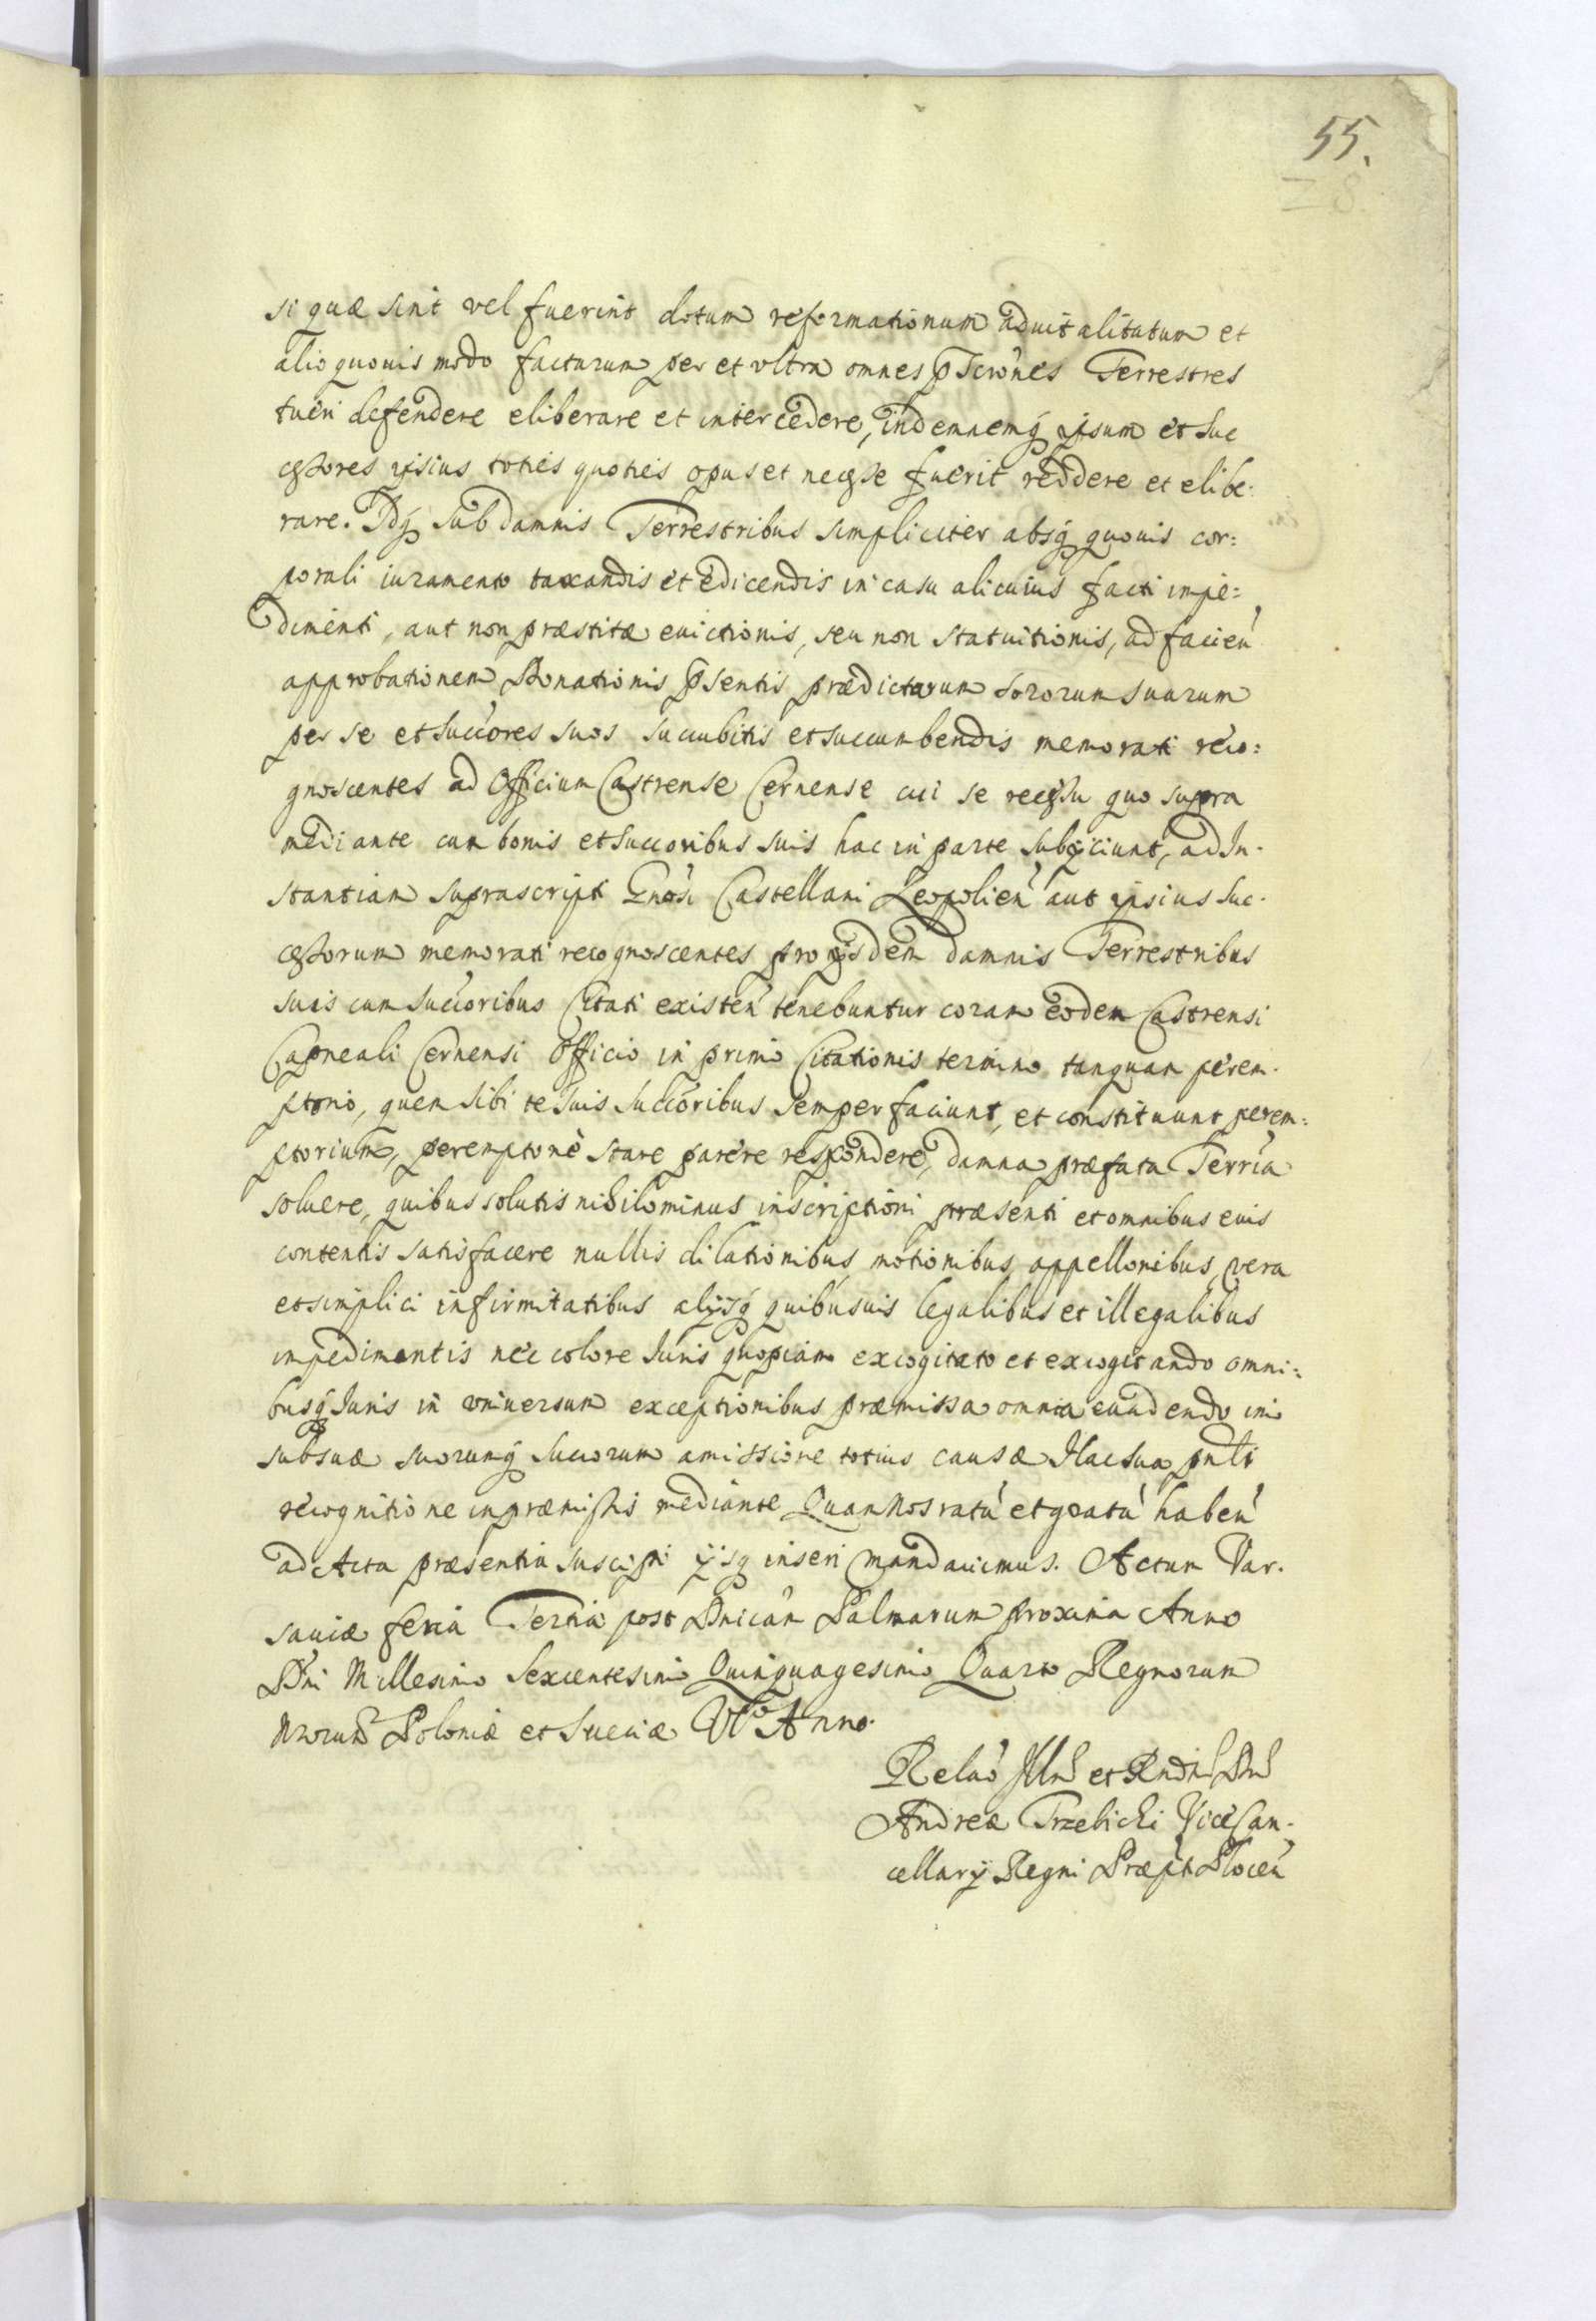 55.
28
si quæ sint vel fuerint dotum reformationum aduitalitatum et
alio quouis modo factarum per et vltra omnes pscrõnes Terrestres
tueri defendere eliberare et intercedere, indemnemq₃ ipsum et suc
cessores ipsius toties quoties opus et necesse fuerit reddere et elibe:
rare. Idq₃ sub damnis Terrestribus simpliciter absq₃ quouis cor:
porali iuramento taxandis et edicendis in casu alicuius facti impe:
dimenti, aut non præstitæ euictionis, seu non statuitionis, ad facień
approbationem Donationis psentis prædictarum sororum suarum
per se et succores suos succubitis et succumbendis memorati reco:
gnoscentes ad Officium Castrense Cernense cui se recessu quo supra
mediante cum bonis et succoribus suis hac in parte subijciunt, ad In:
stantiam suprascripti Gnosi Castellani Leopolień aut ipsius suc:
cessorum memorati recognoscentes pro ijsdem damnis Terrestribus
suis cum succoribus Citati existeń tenebuntur coram eodem Castrensi
Capneali Cernensi Officio in primo Citationis termino tanquam perem:
ptorio, quem sibi te suis succoribus semper faciunt, et constituunt perem:
ptorium, peremptorie stare parere respondere, damna præfata Terria
soluere, quibus solutis nihilominus inscriptioni præsenti et omnibus euis
contentis satisfacere nullis dilationibus, motionibus, appellonibus, vera
et simplici infirmitatibus alijsq₃ quibusuis legalibus et illegalibus
impedimentis nec colore Iuris quopiam excogitato et excogitando omni:
busq₃ Iuris in vniuersum exceptionibus præmissa omnia euadendo imo
sub suæ suorumq₃ succorum amissione totius causæ Hac sua pnti
recognitione in præmissis mediante Quam Nos ratũ et gratũ habeń
ad Acta præsentia suscipi ijsq₃ inseri mandauimus. Actum Var:
sauiæ feria Tertia post Dnicam Palmarum proxima Anno
Dni Millesimo Sexcentesimo Quinquagesimo Quarto Regnorum
Nrorum Poloniæ et Sueciæ VIº Anno.
Relao Illris et Rndmi Dni
Andreæ Trzebicki Vice Can:
cellarij Regni Præpti Ploceń